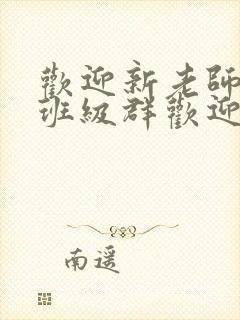 歡迎新老師
班級群歡迎
南遥